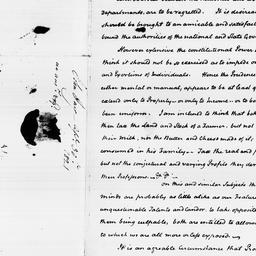 departments, are to be regretted. It is desirea
should be brought to an amicable and satisfact
bound the authorities of the national and State Gover
However extensive the constitutional power
think it should not be so exercised as to impede or
and Exertions of Individuals. Hence the Prudence
either mental or manual, appears to be bad po
extend only to Property, or only to Income, or to bo
been uniform. I am inclined to think that both
then tax the Land and Stock of a Farmer, but not
their Milk, nor the Butter and Cheese made of it,
consumed in his Family. Tax the real and
but not the conjectural and varying Profits they der
their Professions &c. &c.
On this and similar Subjects th
minds are probably as little alike as our Features
unquestionable Talents and Candor, to take opposite
them being culpable, both are entitled to allowan
to which we are all more or less exposed.
It is an agreeable Circumstance that Pro